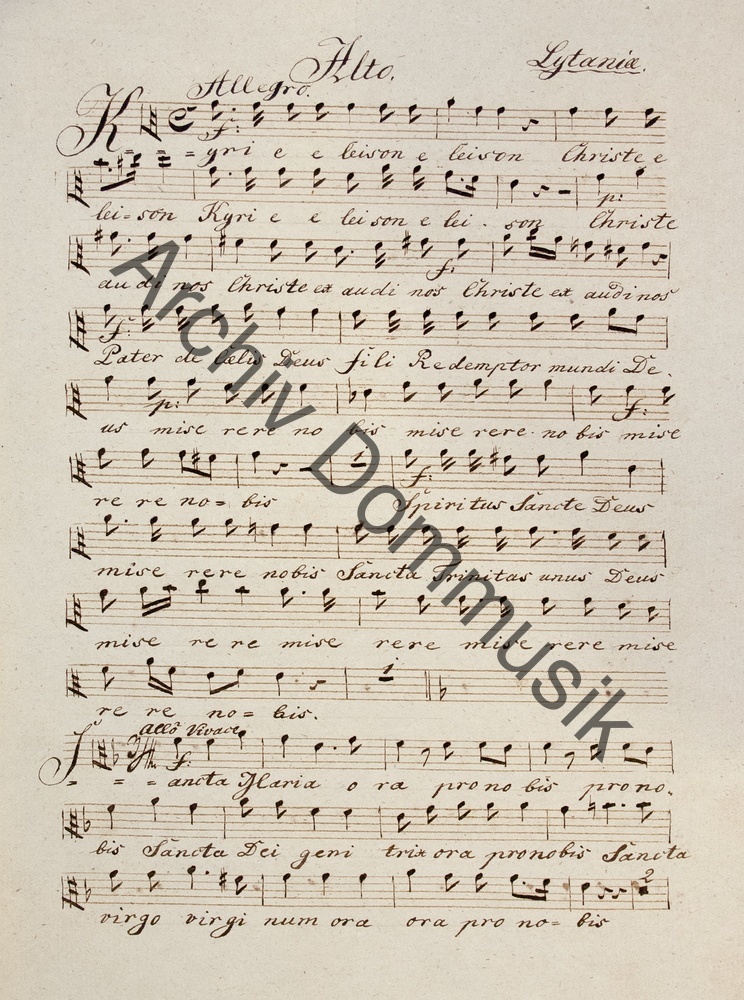 Alto. Lytaniæ.
Allegro.
K = = = yri e e leison e leison Christe e
lei= son Kyri e e lei son e lei . son Christe
au di nos Christe ex au di nos Christe ex audi nos
Pater de Cælis Deus fi li Redemptor mundi De .
us mise rere no bis mise rere no bis mise
re re no= bis Spiritus Sancte Deus
mise rere nobis Sancta Trinitas unus Deus
mise re re mise rere mise rere mise
re re no= bis.
Allo Vivace
S = = = ancta Maria o ra pro no bis pro no .
bis Sancta Dei geni trix ora pro nobis Sancta
virgo virgi num ora ora pro no= bis
Archiv Dommusik